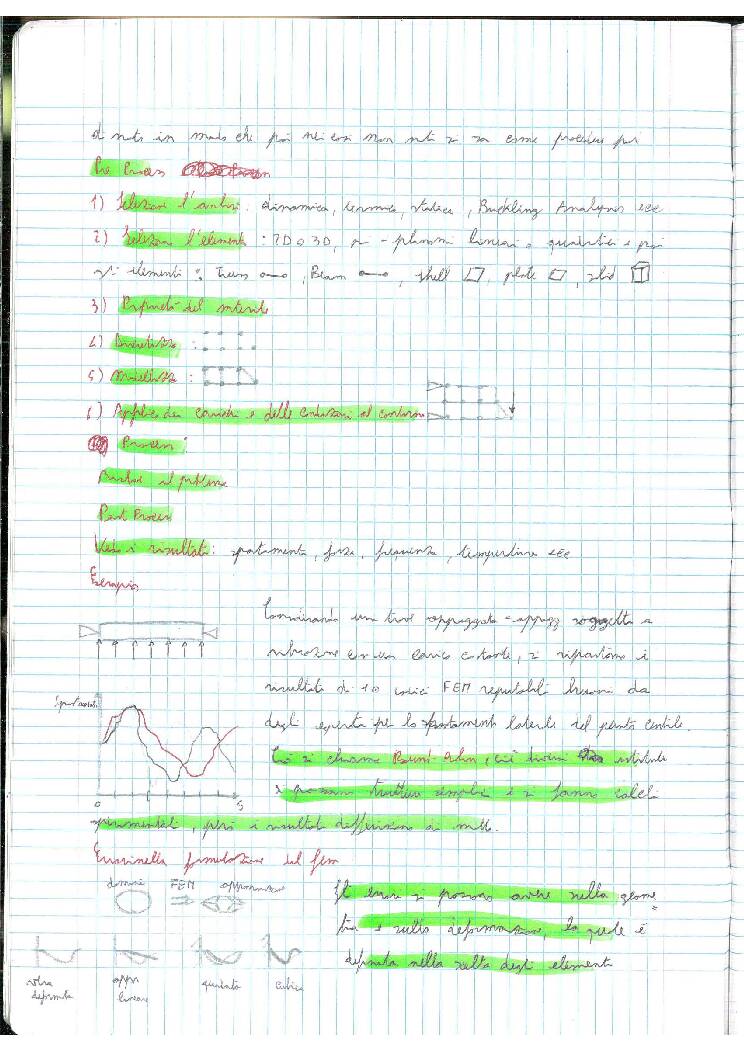 in modo che poi nei casi non noti si sa come procedere per
Pre Process
1) Seleziona l'analisi: dinamica, termica, statica, Buckling Analysis ecc
2) Seleziona l'elemento: 2D o 3D, lineari o quadratici e poi
gli elementi: Truss, Beam, shell, plate, solid
3) Proprietà del materiale
4) Discretizza:
5)
6) Applic dei carichi e delle condizioni al contorno
Process:
Risolve il problema
Post Process
Vedo i risultati: spostamento, forze, frequenza, temperatura ecc
Esempio
Considerando una trave appoggiata-appogg soggetta a
vibrazione con un carico costante, si riportano i
risultati di 10 codici FEM reputabili buoni da
degli esperti per lo spostamento laterale del punto centrale.
Spostamento
0
Ciò si chiama Round-Robin, cioè diversi istituti
si possono strutture semplici e si fanno calcoli
sperimentali, però i risultati differiscono di molto.
Errori nella formulazione del fem
dominio FEM approssimazione
Gli errori si possono avere nella geome
tria e sulla deformazione, la quale è
definita nella scelta degli elementi
vera
deformata
appr
lineare
quadrata
cubica